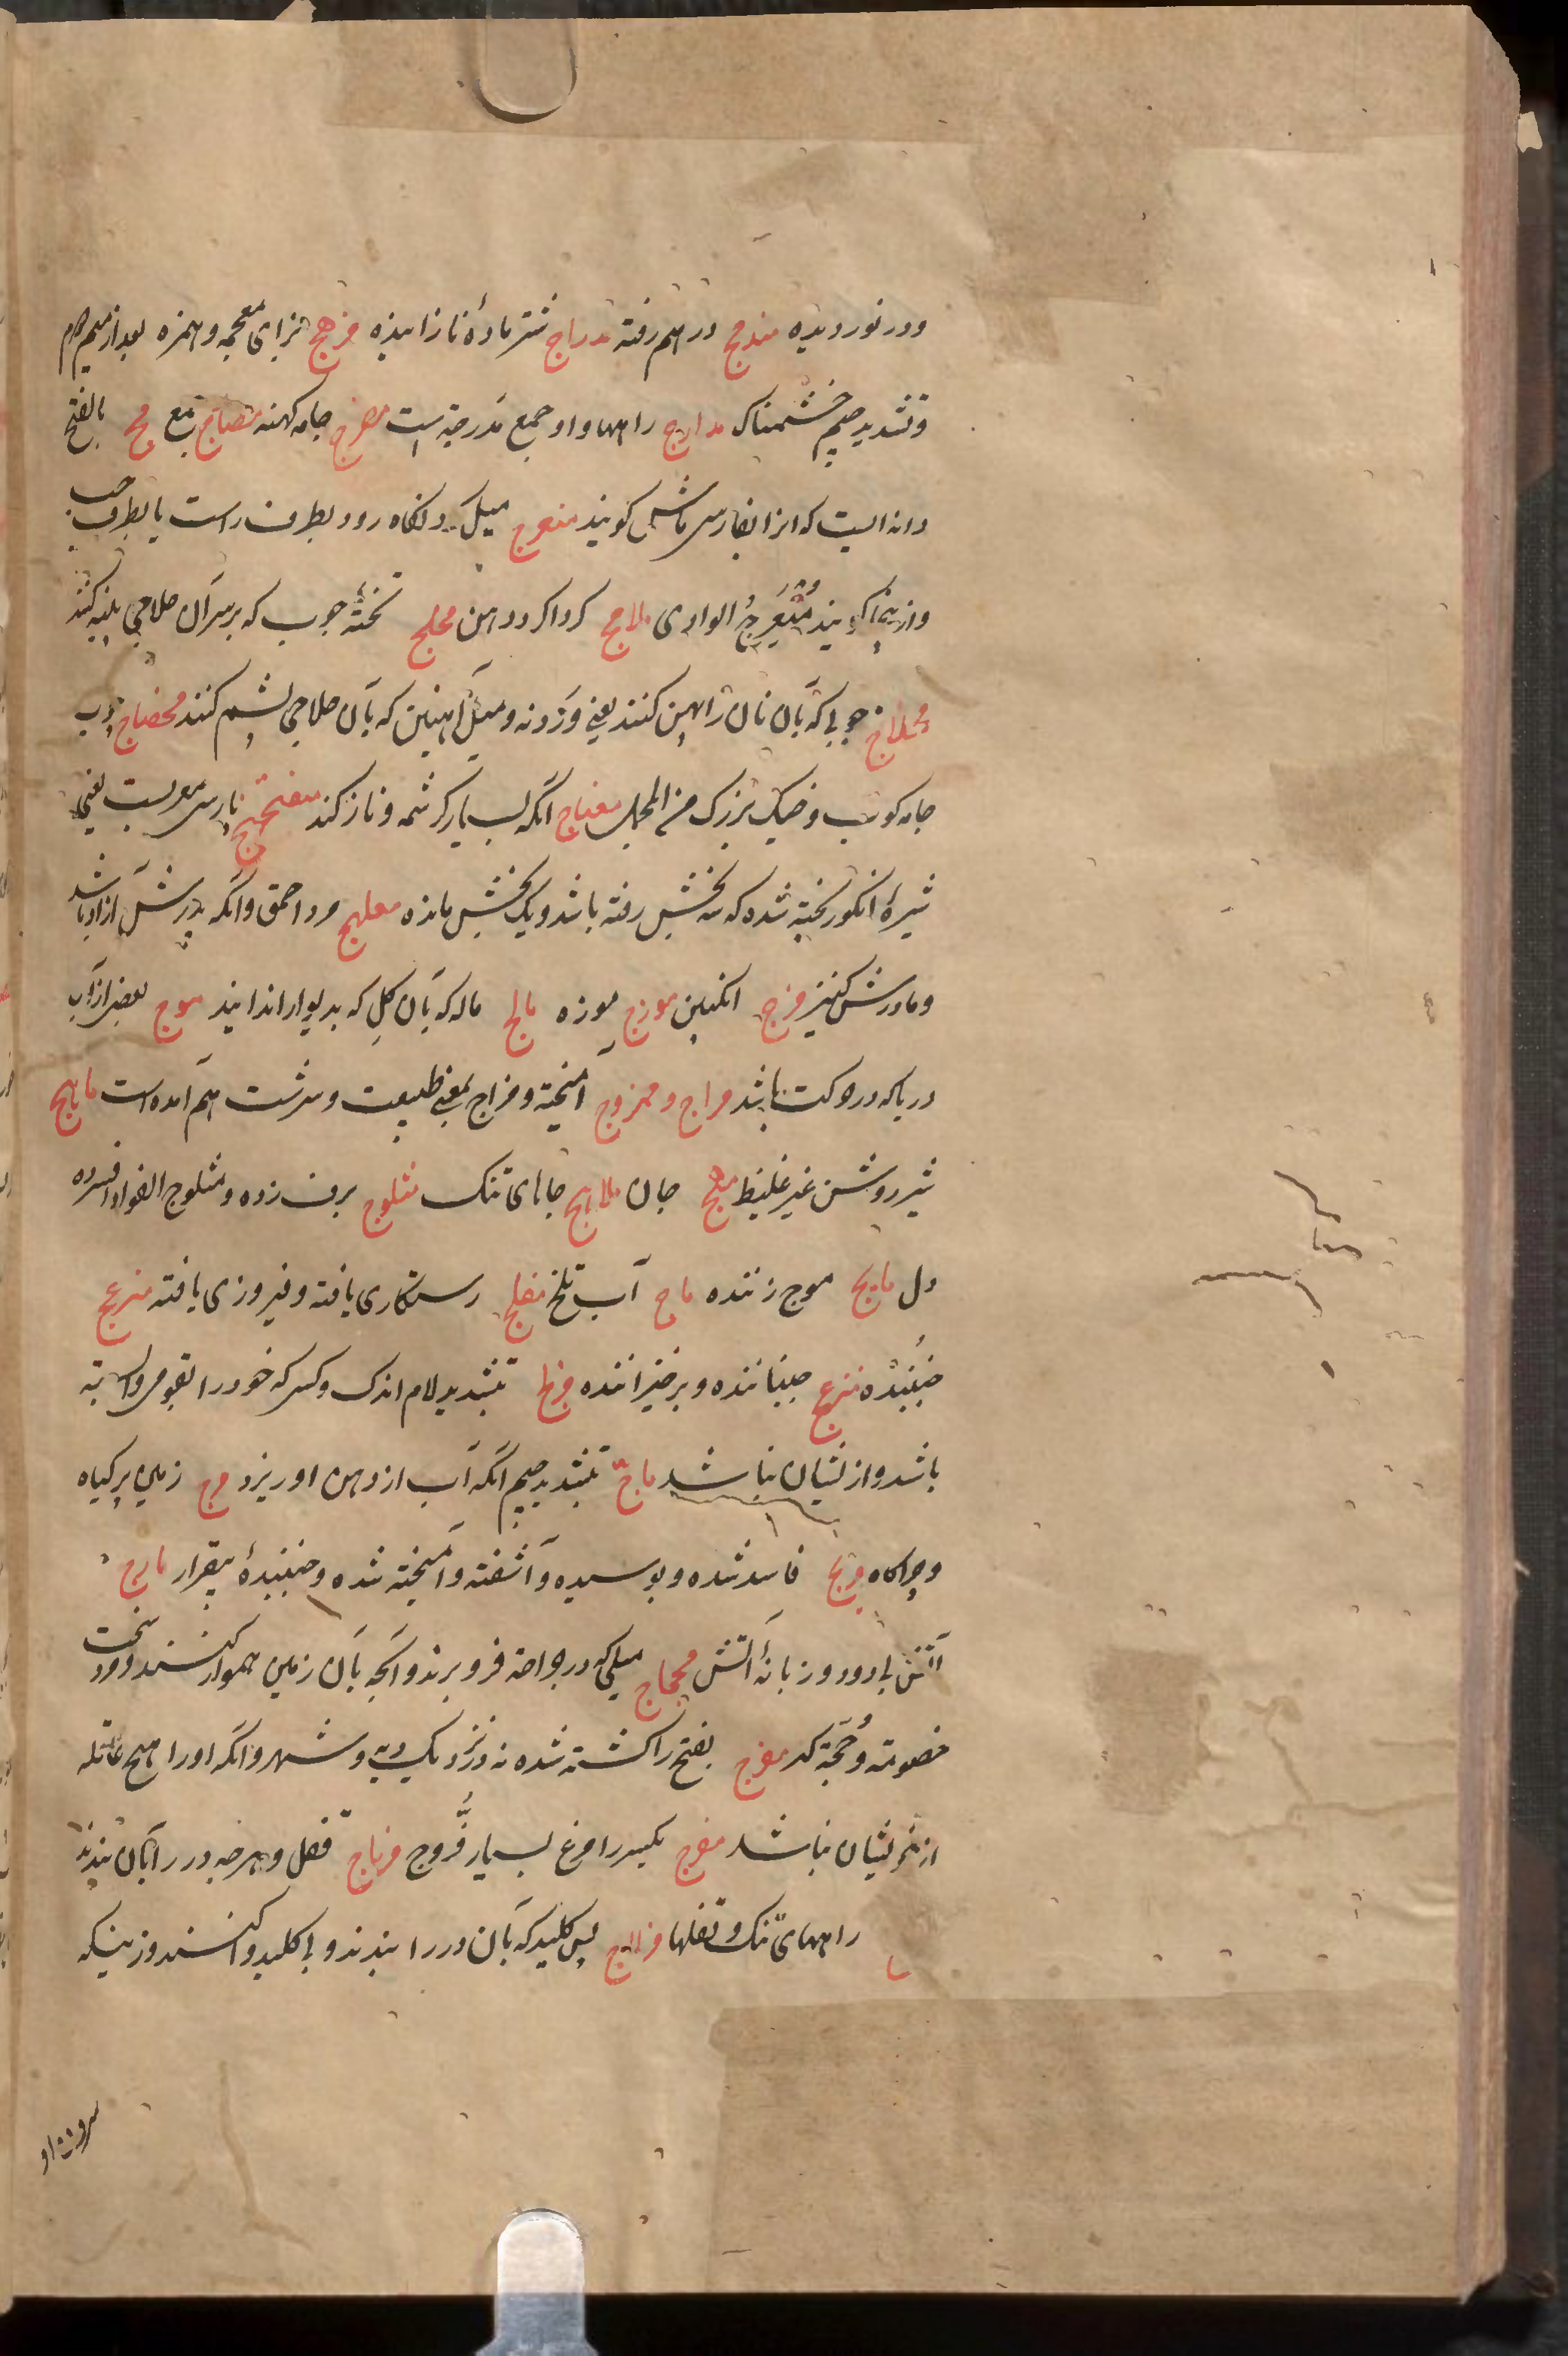 ودر نوردیده مندمج در هم رفته مدراج شتر مادهٔ نازاینده مزهج بزای معجمه و همزه بعد از میم دوم
وتشدید جیم خشمناک مدارج راهها واو جمع مدرجه است مضرج جامه کهنه مضارج جمع مج بالفتح
دانه ایست که انرا بفارسی ماش کویند منعرج میل کردنگاه رود بطرف راست یا بطرف چپ
وازینجا کویند مُنْعَرِجُ الوادی ملامج کرداکرد دهن محلج تختهٔ چوب که بر سر آن حلاجی پنبه کنند
محلاج چوبی که بآن نان را پهن کنند یعنی وردنه ومیل آهنین که بآن حلاجی پشم کنند محضاج چوب
جامه کوب وخیک بزرک من المجمل مغناج آنکه بسیار کرشمه وناز کند میفختج پارسی معربست یعنی
شیرهٔ انکور پخته شده که سه بخشش رفته باشد ویک بخشش مانده معلهج مرد احمق وآنکه پدرش آزاد باشد
ومادرش کنیز مزج انکبین موزج موزه مالج ماله که بآن کل که بدیوار اندایند موج بعضی از آب
دریا که در حرکت باشد مزاج وممزوج آمیخته ومزاج بمعنی طبیعت وسرشت هم آمده است ماهج
شیر روشن غیر غلیظ مهج جان ملاهج جاهای تنک مثلوج برف زده ومثلوج الفواد افسرده
دل مایج موج زننده ماج آب تلخ مفلج رستکاری یافته وفیروزی یافته منزعج
جُنبُنده مزعج جنباننده وبرخیزاننده مزلج بتشدید لام اندک وکسی که خود را بقومی وابسته
باشد واز ایشان نباشد ماجّ بتشدید جیم آنکه آب از دهن او ریزد مرج زمین پر کیاه
وچراکاه مریج فاسد شده وپوسیده وآشفته وآمیخته شده وجنبندهٔ بیقرار مارج
آتش بی دود وزبانهٔ آتش محجاج میلی که در جراحه فرو برند وآنچه بآن زمین هموار کنند ومرد سخت
خصومه وحُجّة کر مفرج بفتح را کشته شده نه در نزدیک دیه وشهر وآنکه او را هیچ عاقله
از خویشان نباشد مفرج بکسر را مرغ بسیار فَرُّوج مرتاج قفل وهرچه در را بآن بندند
راههای تنک وقفلها مزلاج پس کلید که بآن در را بندند وبی کلید وا کنند وزنیکه
سرون او